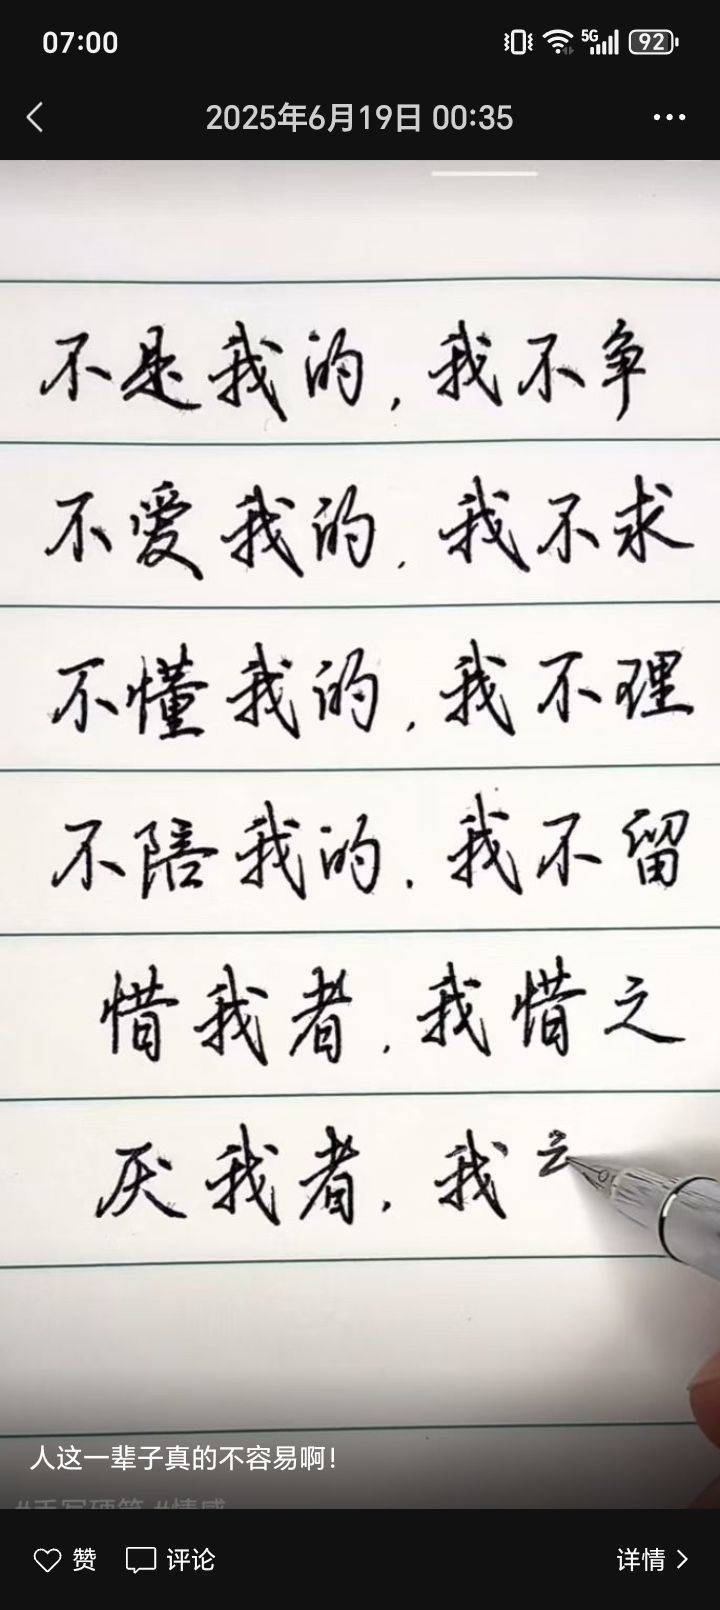 07:00
5G 92
2025年6月19日 00:35
不是我的,我不争
不爱我的,我不求
不懂我的,我不理
不陪我的,我不留
惜我者,我惜之
厌我者,我
人这一辈子真的不容易啊!
#手写硬笔 #情感
赞 评论 详情